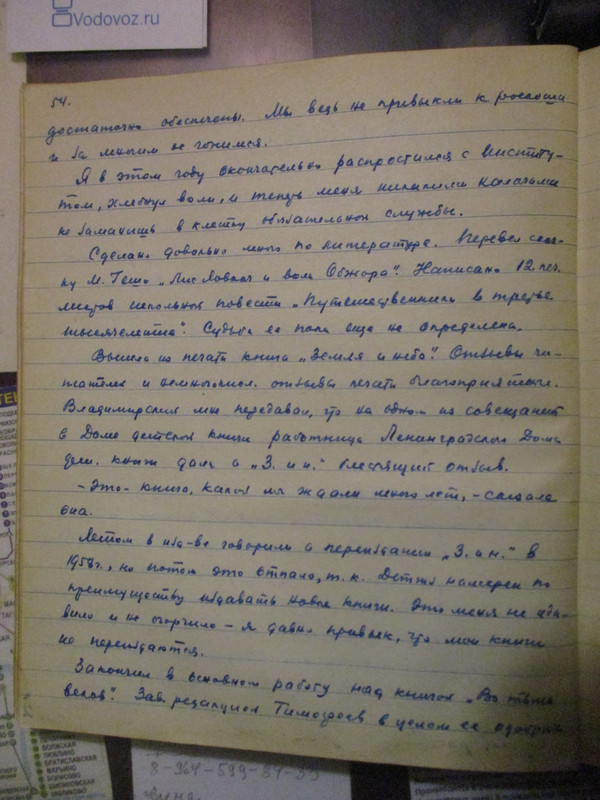 Vodovoz.ru
54.
достаточно обеспечены. Мы ведь не привыкли к роскоши
и за многим не гонимся.
Я в этом году окончательно распростился с Институ-
том, хлебнул воли, и теперь меня никакими калачами
не заманишь в клетку обязательной службы.
Сделано довольно много по литературе. Перевел сказ-
ку М. "Лис Ловкач и волк Обжора". Написано 12 печ.
листов школьной повести "Путешественники в третье
тысячелетие". Судьба ее пока еще не определена.
Вышла из печати книга "Земля и небо". Отзывы чи-
тателей и немногочисл. отзывы печати благоприятные.
Владимирский мне передавал, что на одном из совещаний
в Доме детской книги работница Ленинградского Дома
дет. книги дала о "З. и н." блестящий отзыв.
- Это - книга, какой мы ждали много лет, - сказала
она.
Летом в изд-ве говорили о переиздании "З. и н." в
1958г., но потом это отпало, т. к. Детгиз намерен по
преимуществу издавать новые книги. Это меня не уди-
вило и не огорчило - я давно привык, что мои книги
не переиздаются.
Закончил в основном работу над книгой "Во тьме
веков". Зав. редакцией Тимофеев в целом ее одобрил
ВОЛЖСКАЯ
ЛЮБЛИНО
БРАТИСЛАВСКАЯ
МАРЬИНО
БОРИСОВО
ШИПИЛОВСКАЯ